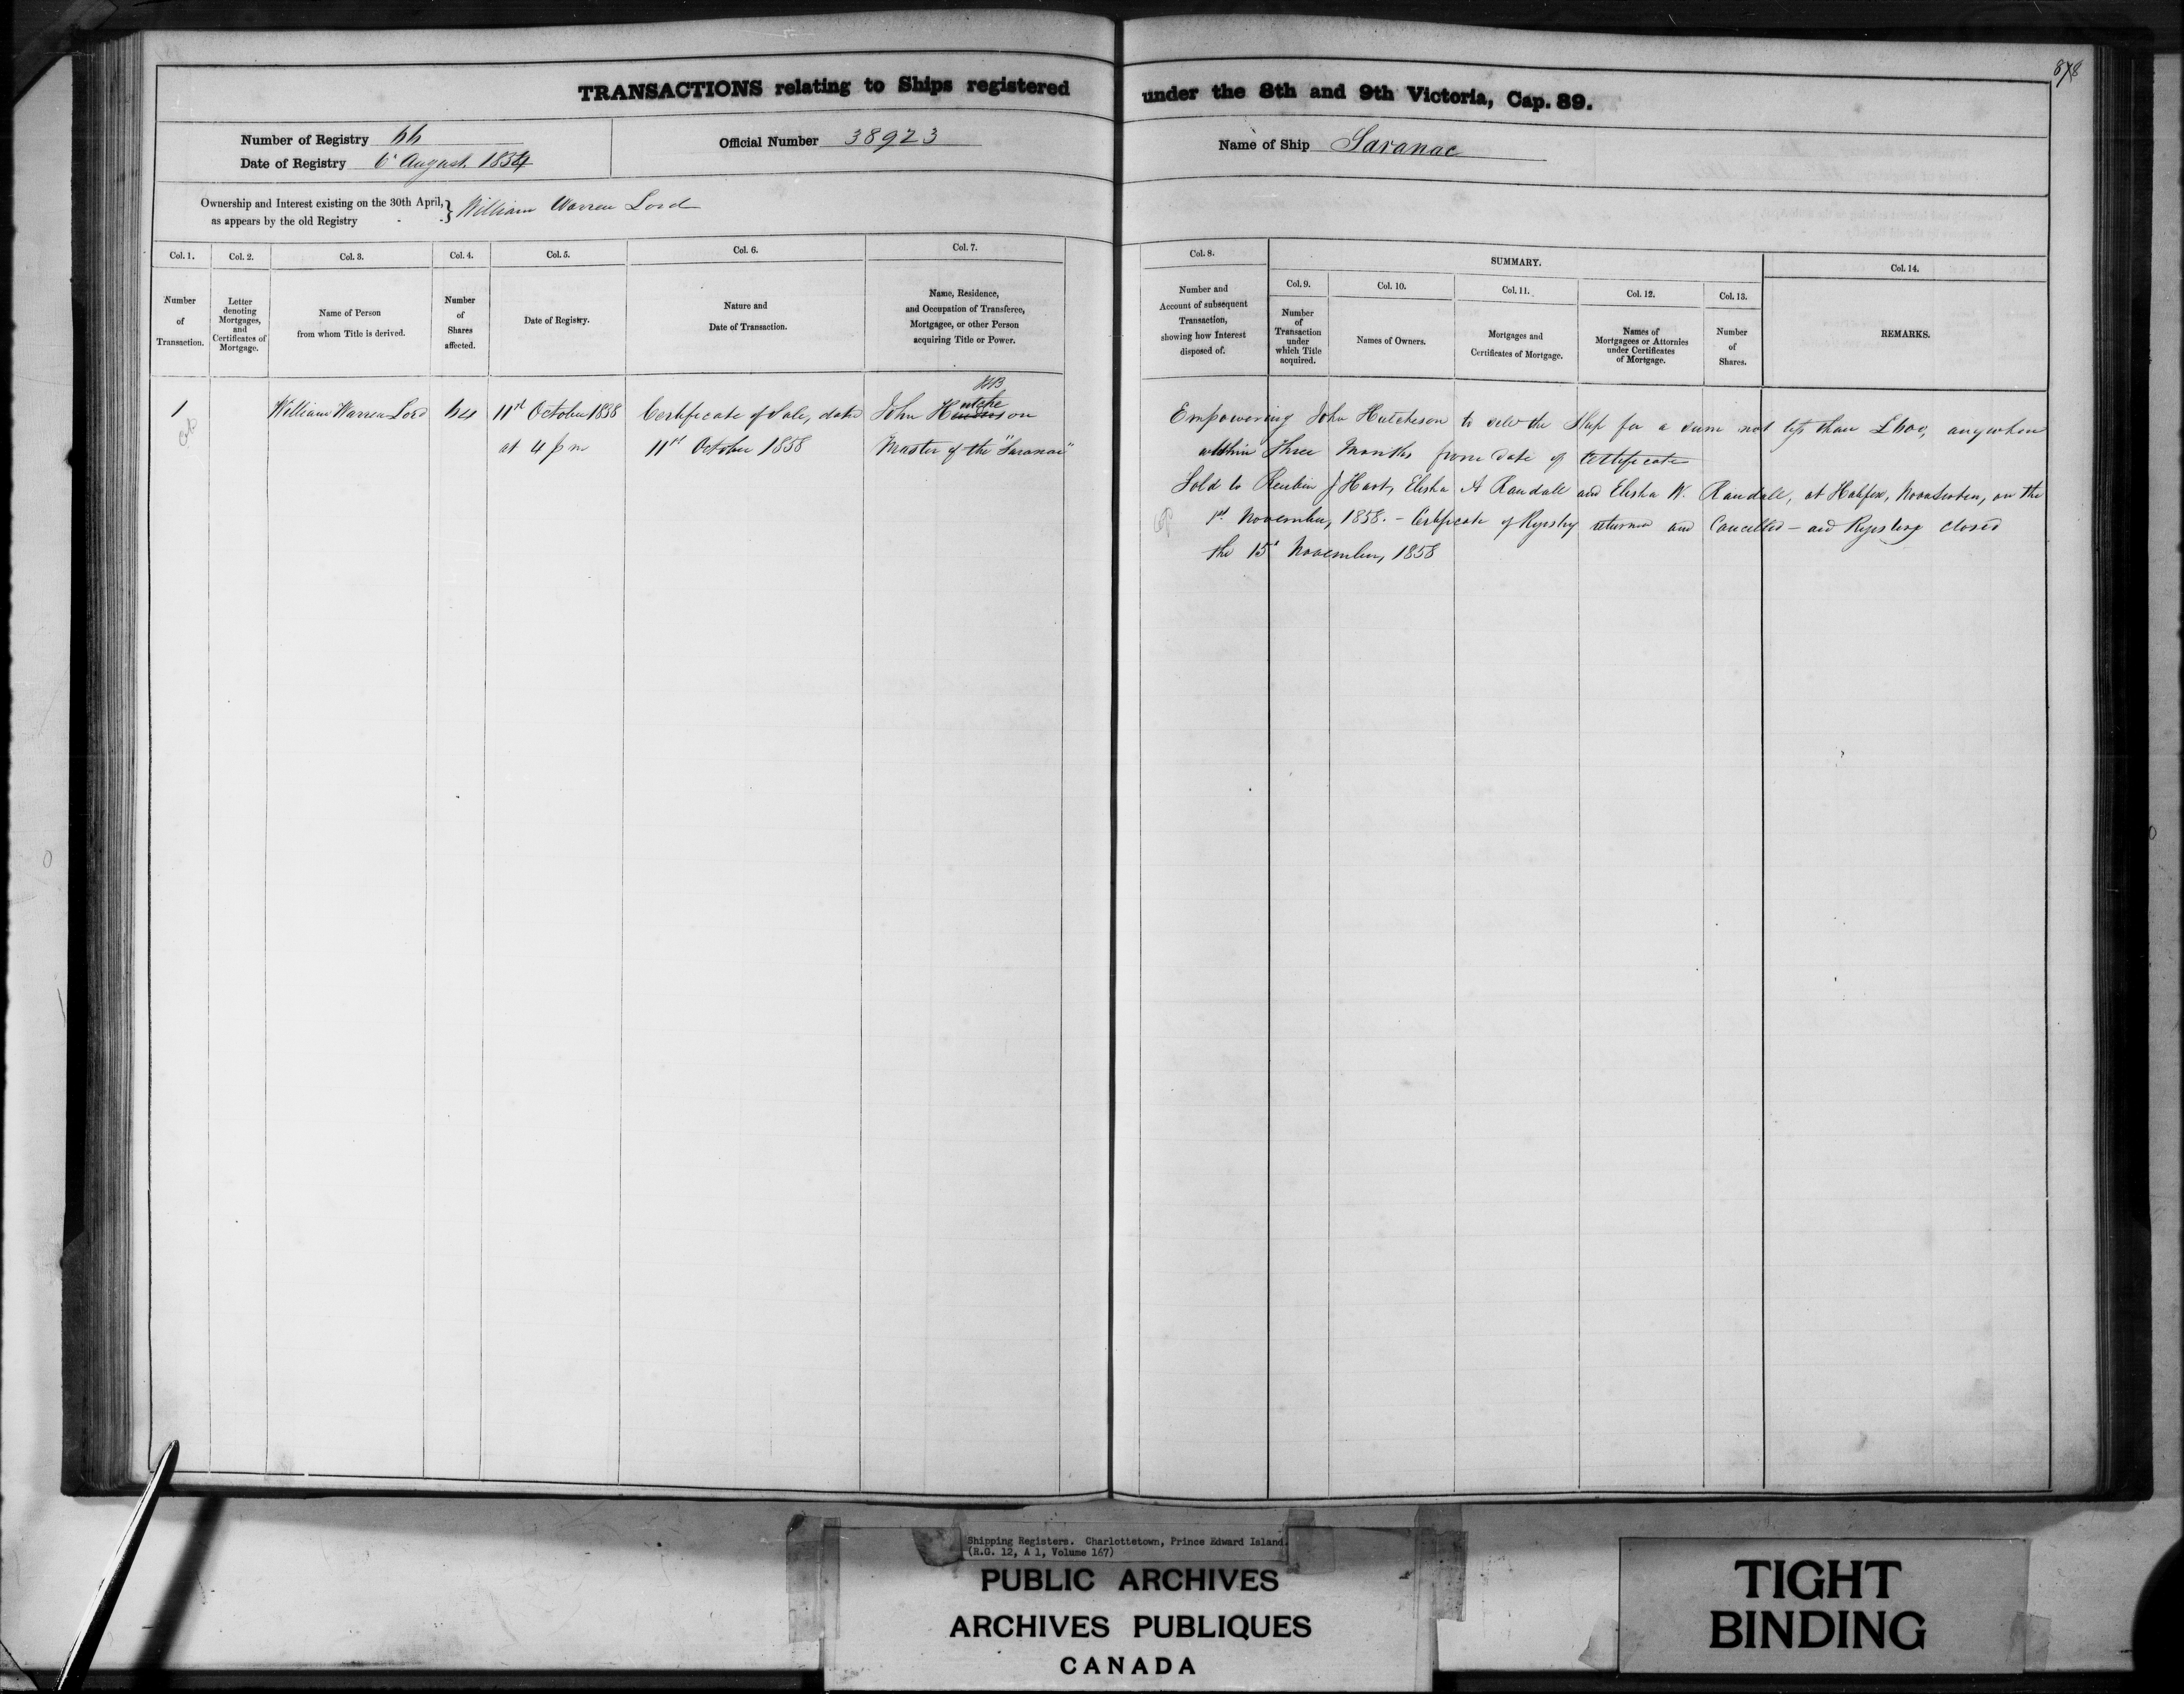 878
TRANSACTIONS relating to Ships registered under the 8th and 9th Victoria, Cap. 89.
Number of Registry 66
Date of Registry 6th August 1854
Official Number 38923
Name of Ship Saranac
Ownership and Interest existing on the 30th April, as appears by the old Registry } William Warren Lord
Col. 1. Col. 2. Col. 3. Col. 4. Col. 5. Col. 6. Col. 7. Col. 8. SUMMARY. Col. 14.
Col. 9. Col. 10. Col. 11. Col. 12. Col. 13.
Number of Transaction.
Letter denoting Mortgages, and Certificates of Mortgage.
Name of Person from whom Title is derived.
Number of Shares affected.
Date of Registry.
Nature and Date of Transaction.
Name, Residence, and Occupation of Transferee, Mortgagee, or other Person acquiring Title or Power.
Number and Account of subsequent Transaction, showing how Interest disposed of.
Number of Transaction under which Title acquired.
Names of Owners.
Mortgages and Certificates of Mortgage.
Names of Mortgagees or Attornies under Certificates of Mortgage.
Number of Shares.
REMARKS.
1 William Warren Lord 64 11th October 1858 Certificate of Sale, dated John Hutcheson
at 4 pm 11th October 1858 Master of the "Saranac"
Empowering John Hutcheson to sell the Ship for a sum not less than £600, anywhere
within Three Months from date of Certificate
Sold to Reubin J Hart, Elisha A Randall and Elisha W. Randall, at Halifax, Nova Scotia, on the
1st November, 1858. - Certificate of Registry returned and Cancelled - and Registry closed
the 15th November, 1858
Shipping Registers. Charlottetown, Prince Edward Island.
(R.G. 12, A 1, Volume 167)
PUBLIC ARCHIVES
ARCHIVES PUBLIQUES
CANADA
TIGHT
BINDING